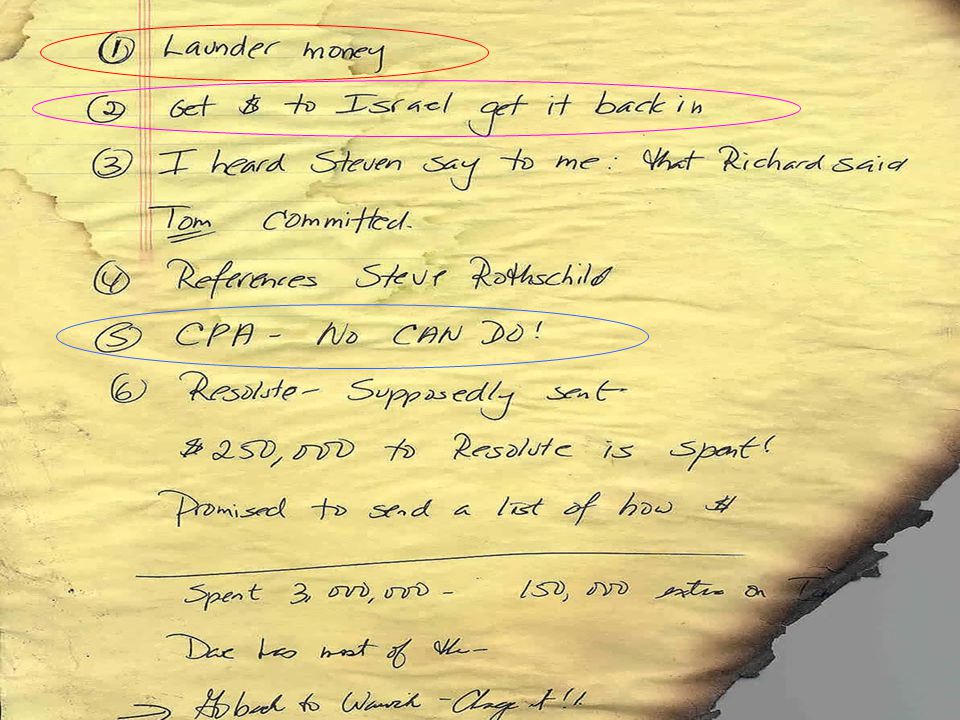 ① Launder money
② Get $ to Israel get it back in
③ I heard Steven say to me: that Richard said
Tom committed.
④ References Steve Rothschild
⑤ CPA - No CAN DO!
⑥ Resolute - Supposedly sent
$250,000 to Resolute is spent!
Promised to send a list of how $
Spent 3,000,000 - 150,000 extra on
Dave has most of the -
→ Go back to - Change it!!